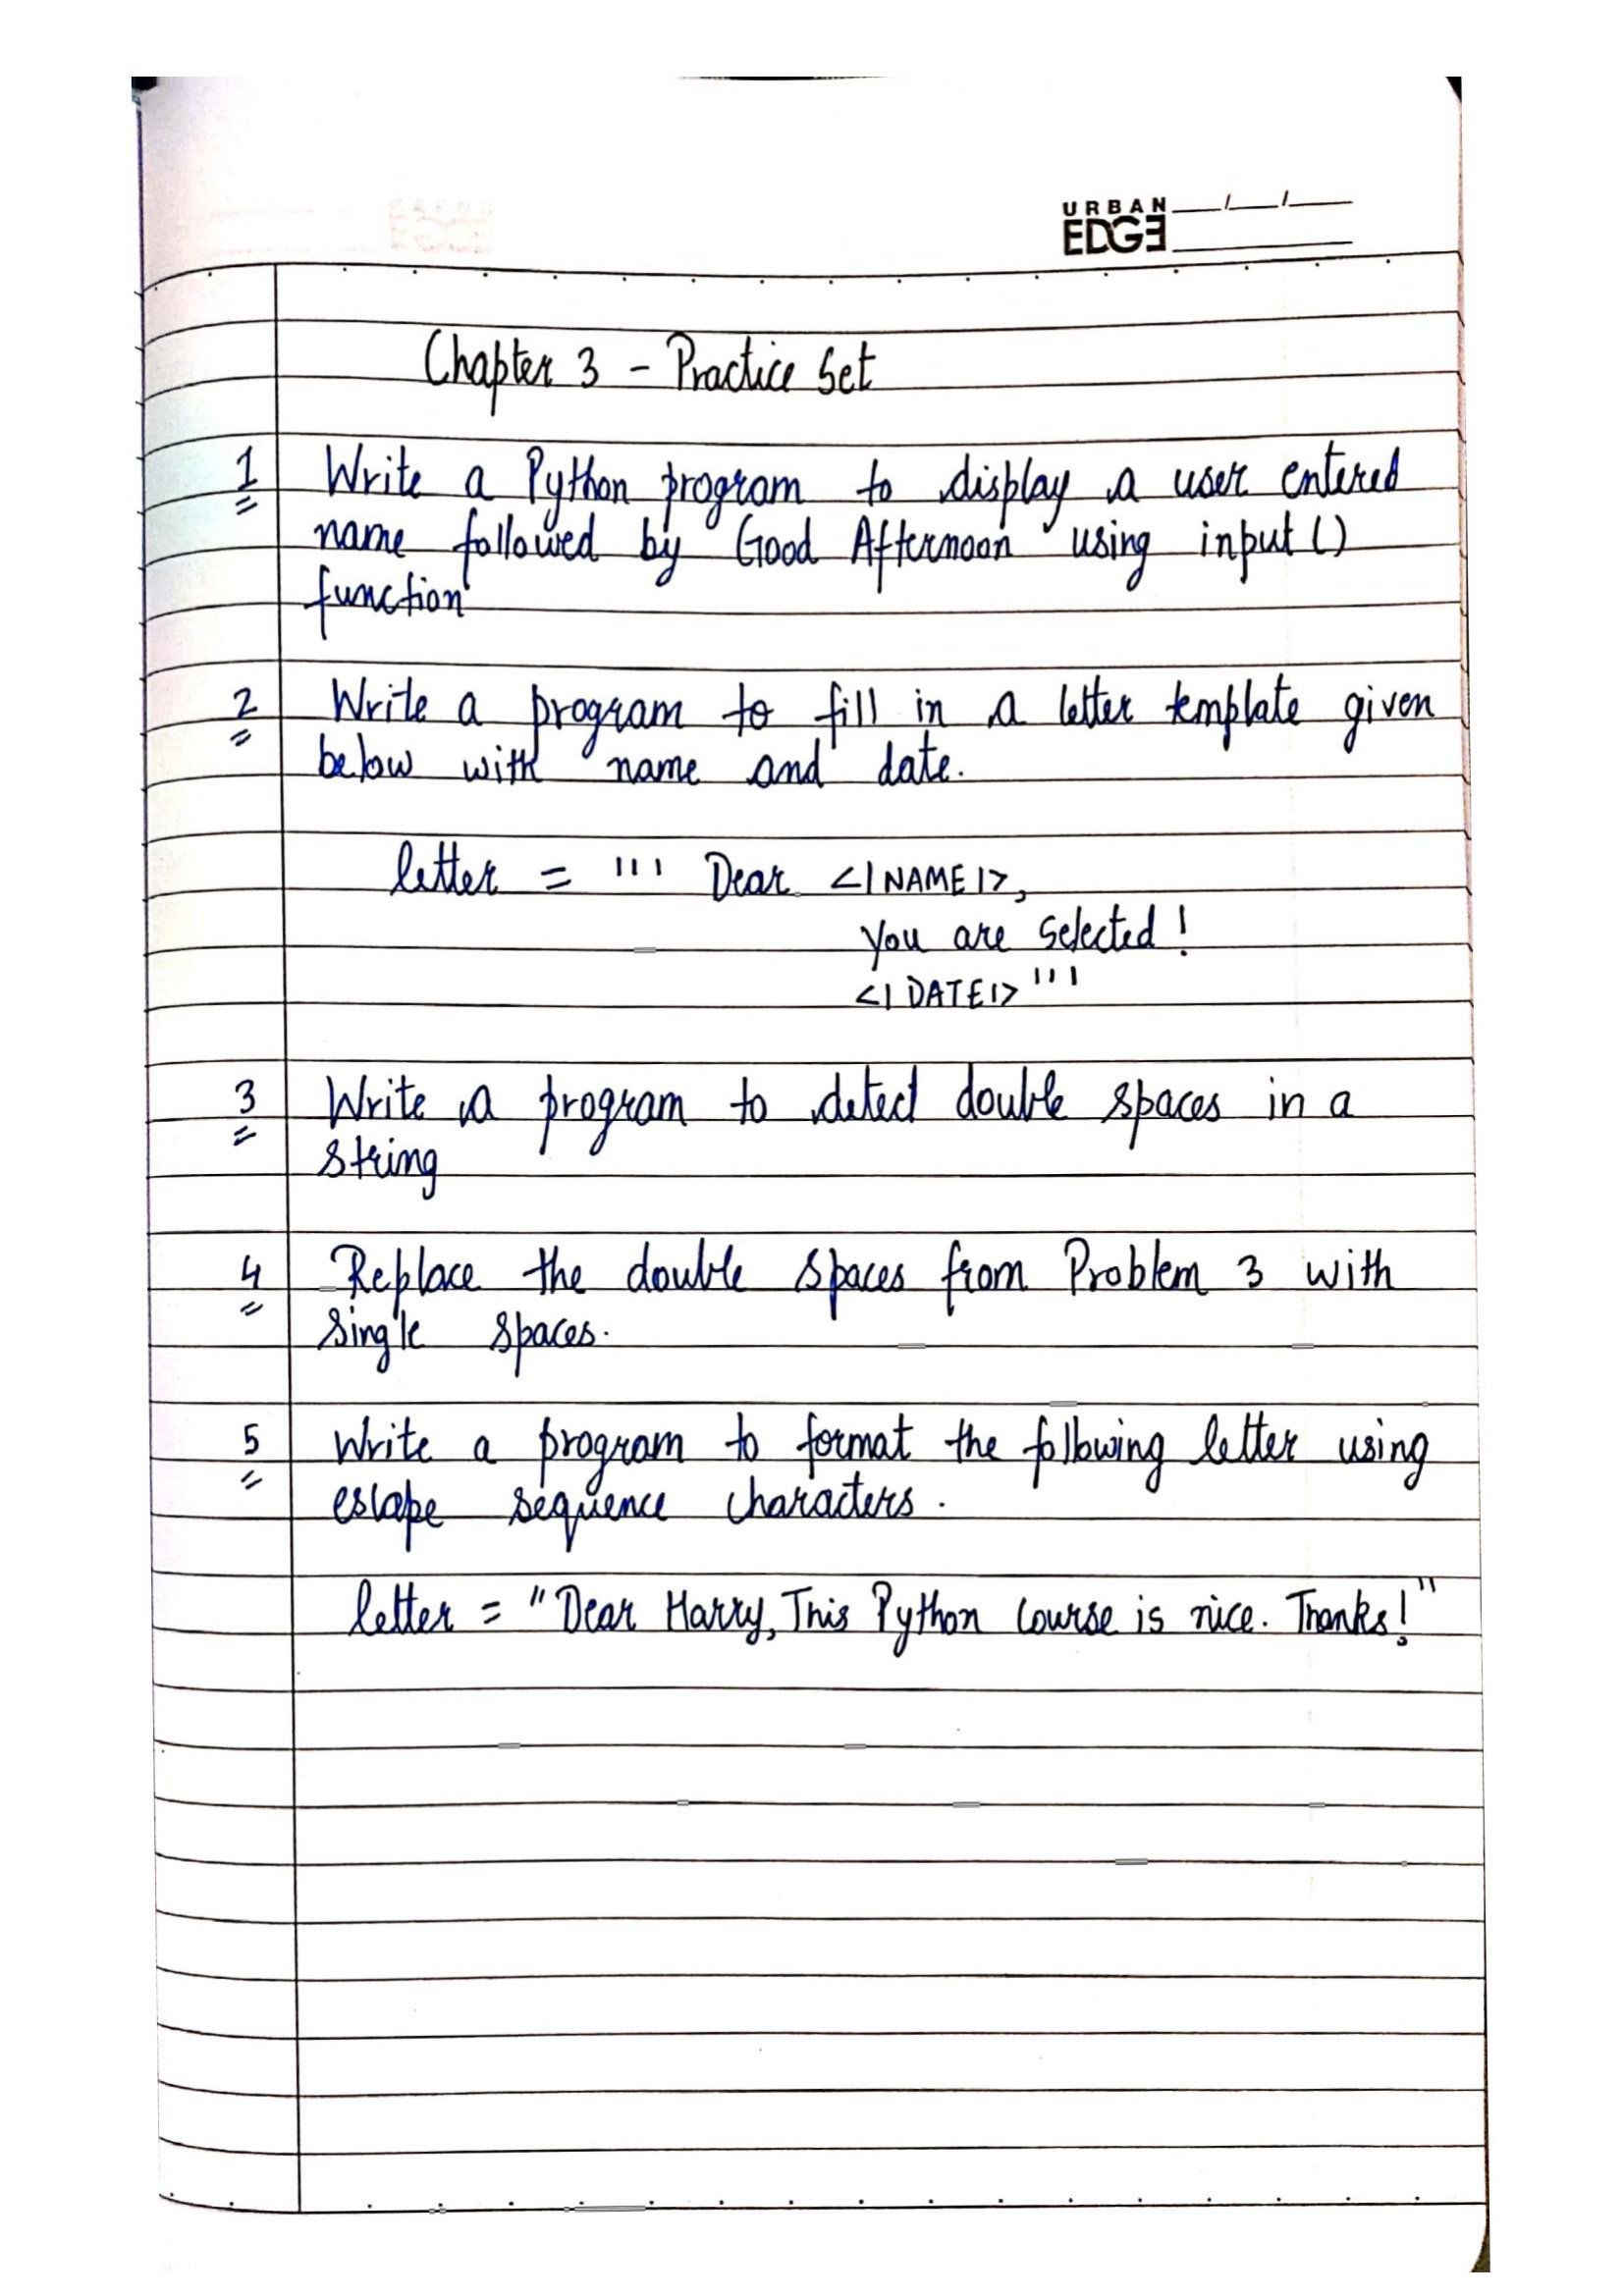 URBAN
EDGE
Chapter 3 - Practice Set
1 Write a Python program to display a user entered
name followed by Good Afternoon using input ()
function
2 Write a program to fill in a letter template given
below with name and date.
letter = ''' Dear <|NAME|>,
You are selected!
<|DATE|> '''
3 Write a program to detect double spaces in a
string
4 Replace the double spaces from Problem 3 with
single spaces.
5 Write a program to format the following letter using
escape sequence characters.
letter = "Dear Harry, This Python course is nice. Thanks!"